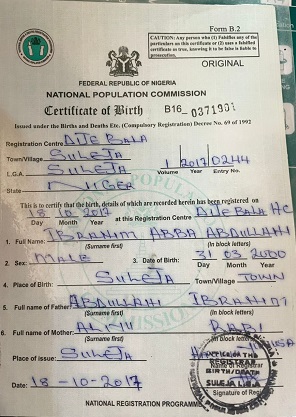 Form B.2
CAUTION: Any person who (1) Falsifies any of the particulars on this certificate or (2) uses a falsified certificate as true, knowing it to be false is liable to prosecution.
ORIGINAL
FEDERAL REPUBLIC OF NIGERIA
NATIONAL POPULATION COMMISSION
Certificate of Birth B16 0371901
Issued under the Births and Deaths Etc. (Compulsory Registration) Decree No. 69 of 1992
Registration Centre AJE BALA
Town/Village SULEJA
L.G.A. SULEJA 1 2017 0244
Volume Year Entry No.
State NIGER
This is to certify that the birth, details of which are recorded herein has been registered on
18 10 2017 at this Registration Centre
Day Month Year
1. Full Name: IBRAHIM ABBA ABDULLAHI
(Surname first) (In block letters)
2. Sex: MALE 3. Date of Birth: 31 03 2000
Day Month Year
4. Place of Birth: SULEJA Town/Village TOWN
5. Full name of Father: ABDULLAHI IBRAHIM
(Surname first) (In block letters)
6. Full name of Mother: ALIYU
(Surname first) (In block letters)
Place of issue: SULEJA
Name of Registrar
REGISTRAR
BIRTH/DEATH
SULEJA L.G.A
Date: 18-10-2017 Signature of
NATIONAL REGISTRATION PROGRAMME